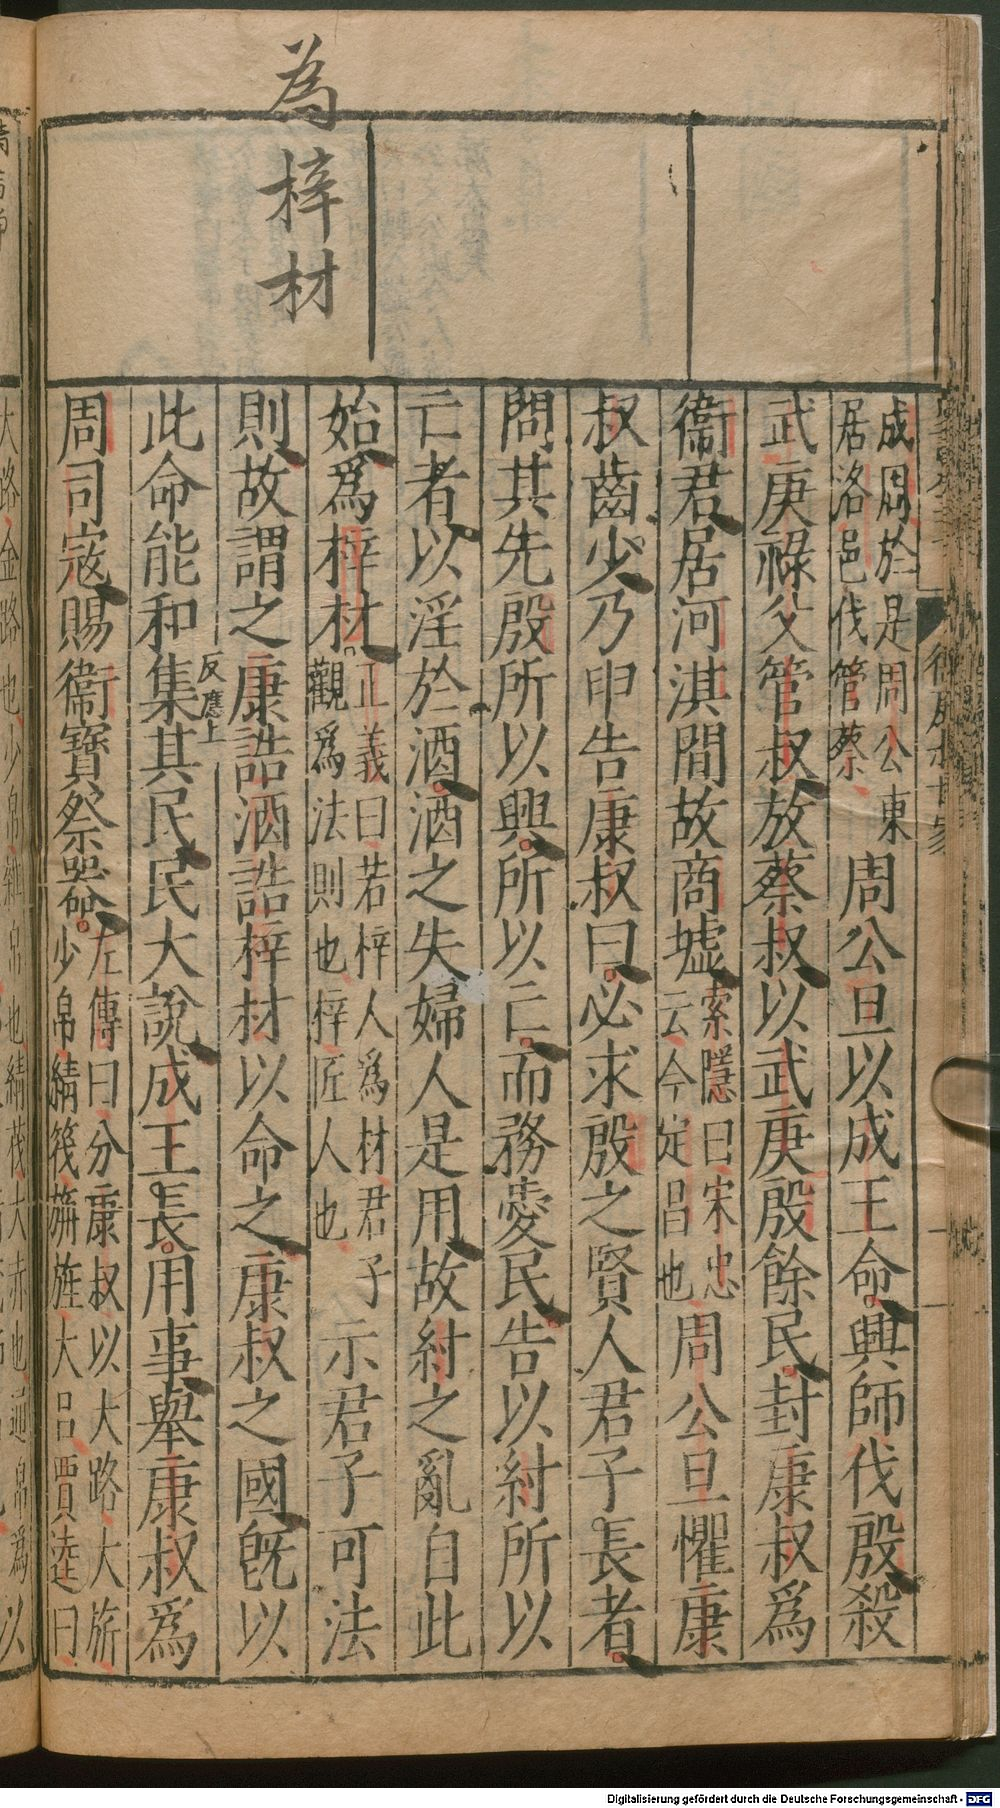 為梓材
成周於是周公東
居洛邑伐管蔡
周公旦以成王命興師伐殷殺
武庚祿父管叔放蔡叔以武庚殷餘民封康叔爲
衞君居河淇間故商墟
索隱曰宋忠
云今定昌也
周公旦懼康
叔齒少乃申告康叔曰必求殷之賢人君子長者
問其先殷所以興所以亡而務愛民告以紂所以
亡者以淫於酒酒之失婦人是用故紂之亂自此
始爲梓材
正義曰若梓人爲材君子
觀爲法則也梓匠人也
示君子可法
則故謂之康誥酒誥梓材以命之康叔之國旣以
反應上
此命能和集其民民大說成王長用事舉康叔爲
周司寇賜衞寶祭器命
左傳曰分康叔以大路大旂
少帛綪茷旃旌大呂賈逵曰
大路金路也少帛雜帛也綪茷大赤也通帛爲
以
Digitalisierung gefördert durch die Deutsche Forschungsgemeinschaft - DFG